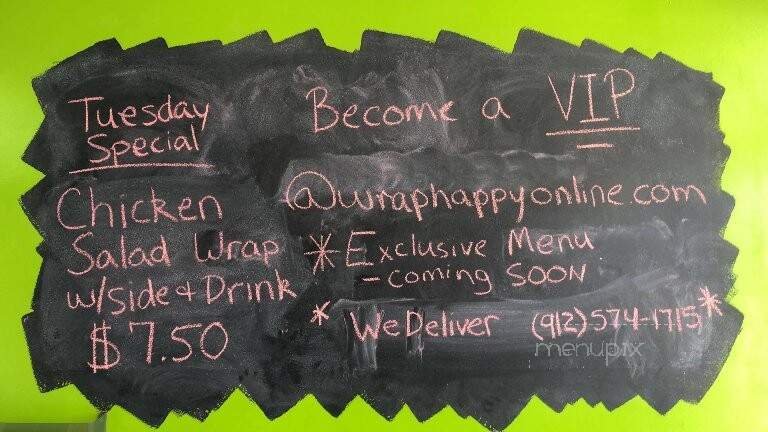 Tuesday
Special
Chicken
Salad Wrap
w/side & Drink
$7.50
Become a VIP
@wraphappyonline.com
* Exclusive Menu
- coming SOON
* We Deliver (912)574-1715 *
menupix